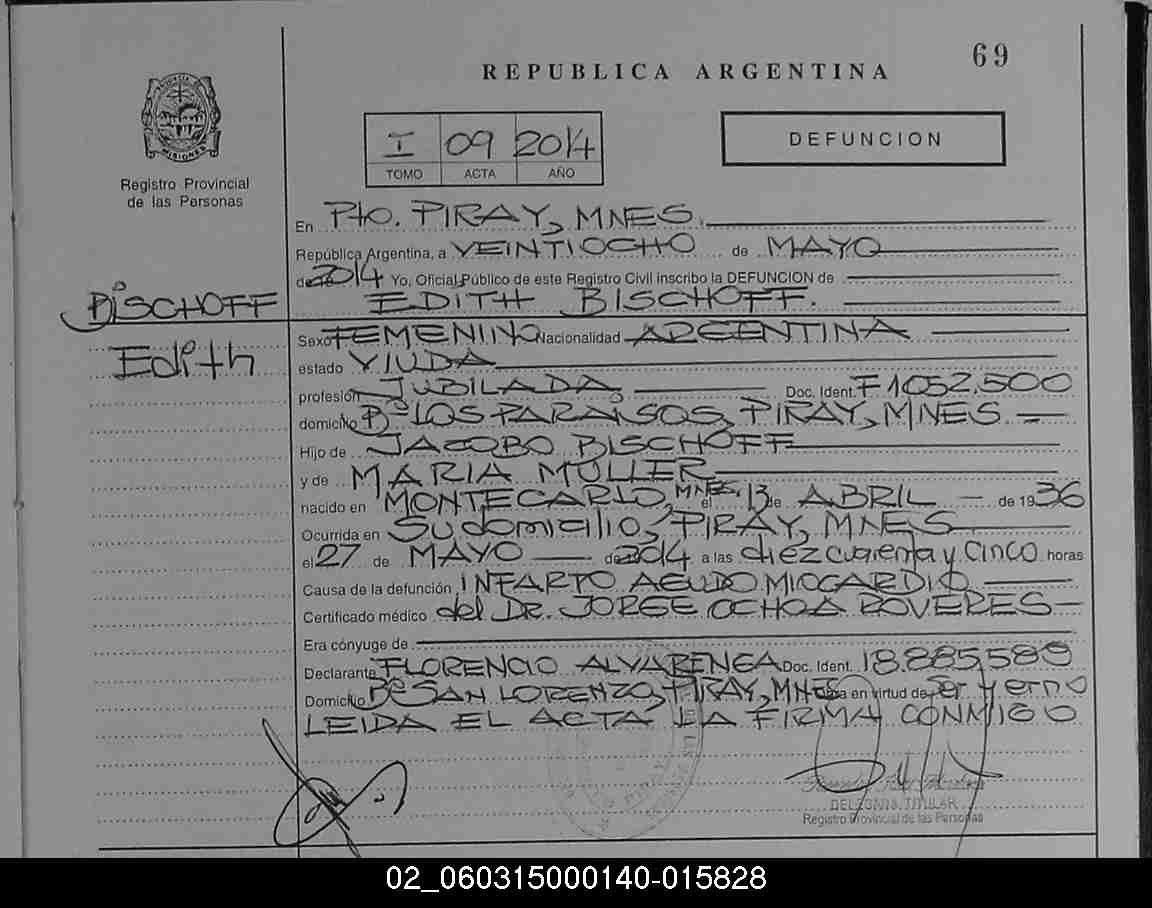 69
REPUBLICA ARGENTINA
I 09 2014
TOMO ACTA AÑO
DEFUNCION
MISIONES
Registro Provincial
de las Personas
En Pto. PIRAY, MNES.
República Argentina, a VEINTIOCHO de MAYO
de 2014 Yo, Oficial Público de este Registro Civil inscribo la DEFUNCION de
BISCHOFF
EDITH BISCHOFF.
Edith
Sexo FEMENINO Nacionalidad ARGENTINA
estado VIUDA
profesión JUBILADA Doc. Ident. F 1052.500
domicilio Bº LOS PARAISOS, PIRAY, MNES
Hijo de JACOBO BISCHOFF
y de MARIA MULLER
nacido en MONTECARLO, MNES. el 13 de ABRIL de 1936
Ocurrida en Su domicilio, PIRAY, MNES
el 27 de MAYO de 2014 a las diez cuarenta y cinco horas
Causa de la defunción INFARTO AGUDO MIOCARDIO
Certificado médico del DR. JORGE OCHOA ROVERES
Era cónyuge de
Declarante FLORENCIO ALVARENGA Doc. Ident. 18.885.589
Domicilio Bº SAN LORENZO, PIRAY, MNES Obra en virtud de ser yerno
LEIDA EL ACTA, LA FIRMA CONMIGO
DELEGADA TITULAR
Registro Provincial de las Personas
02_060315000140-015828